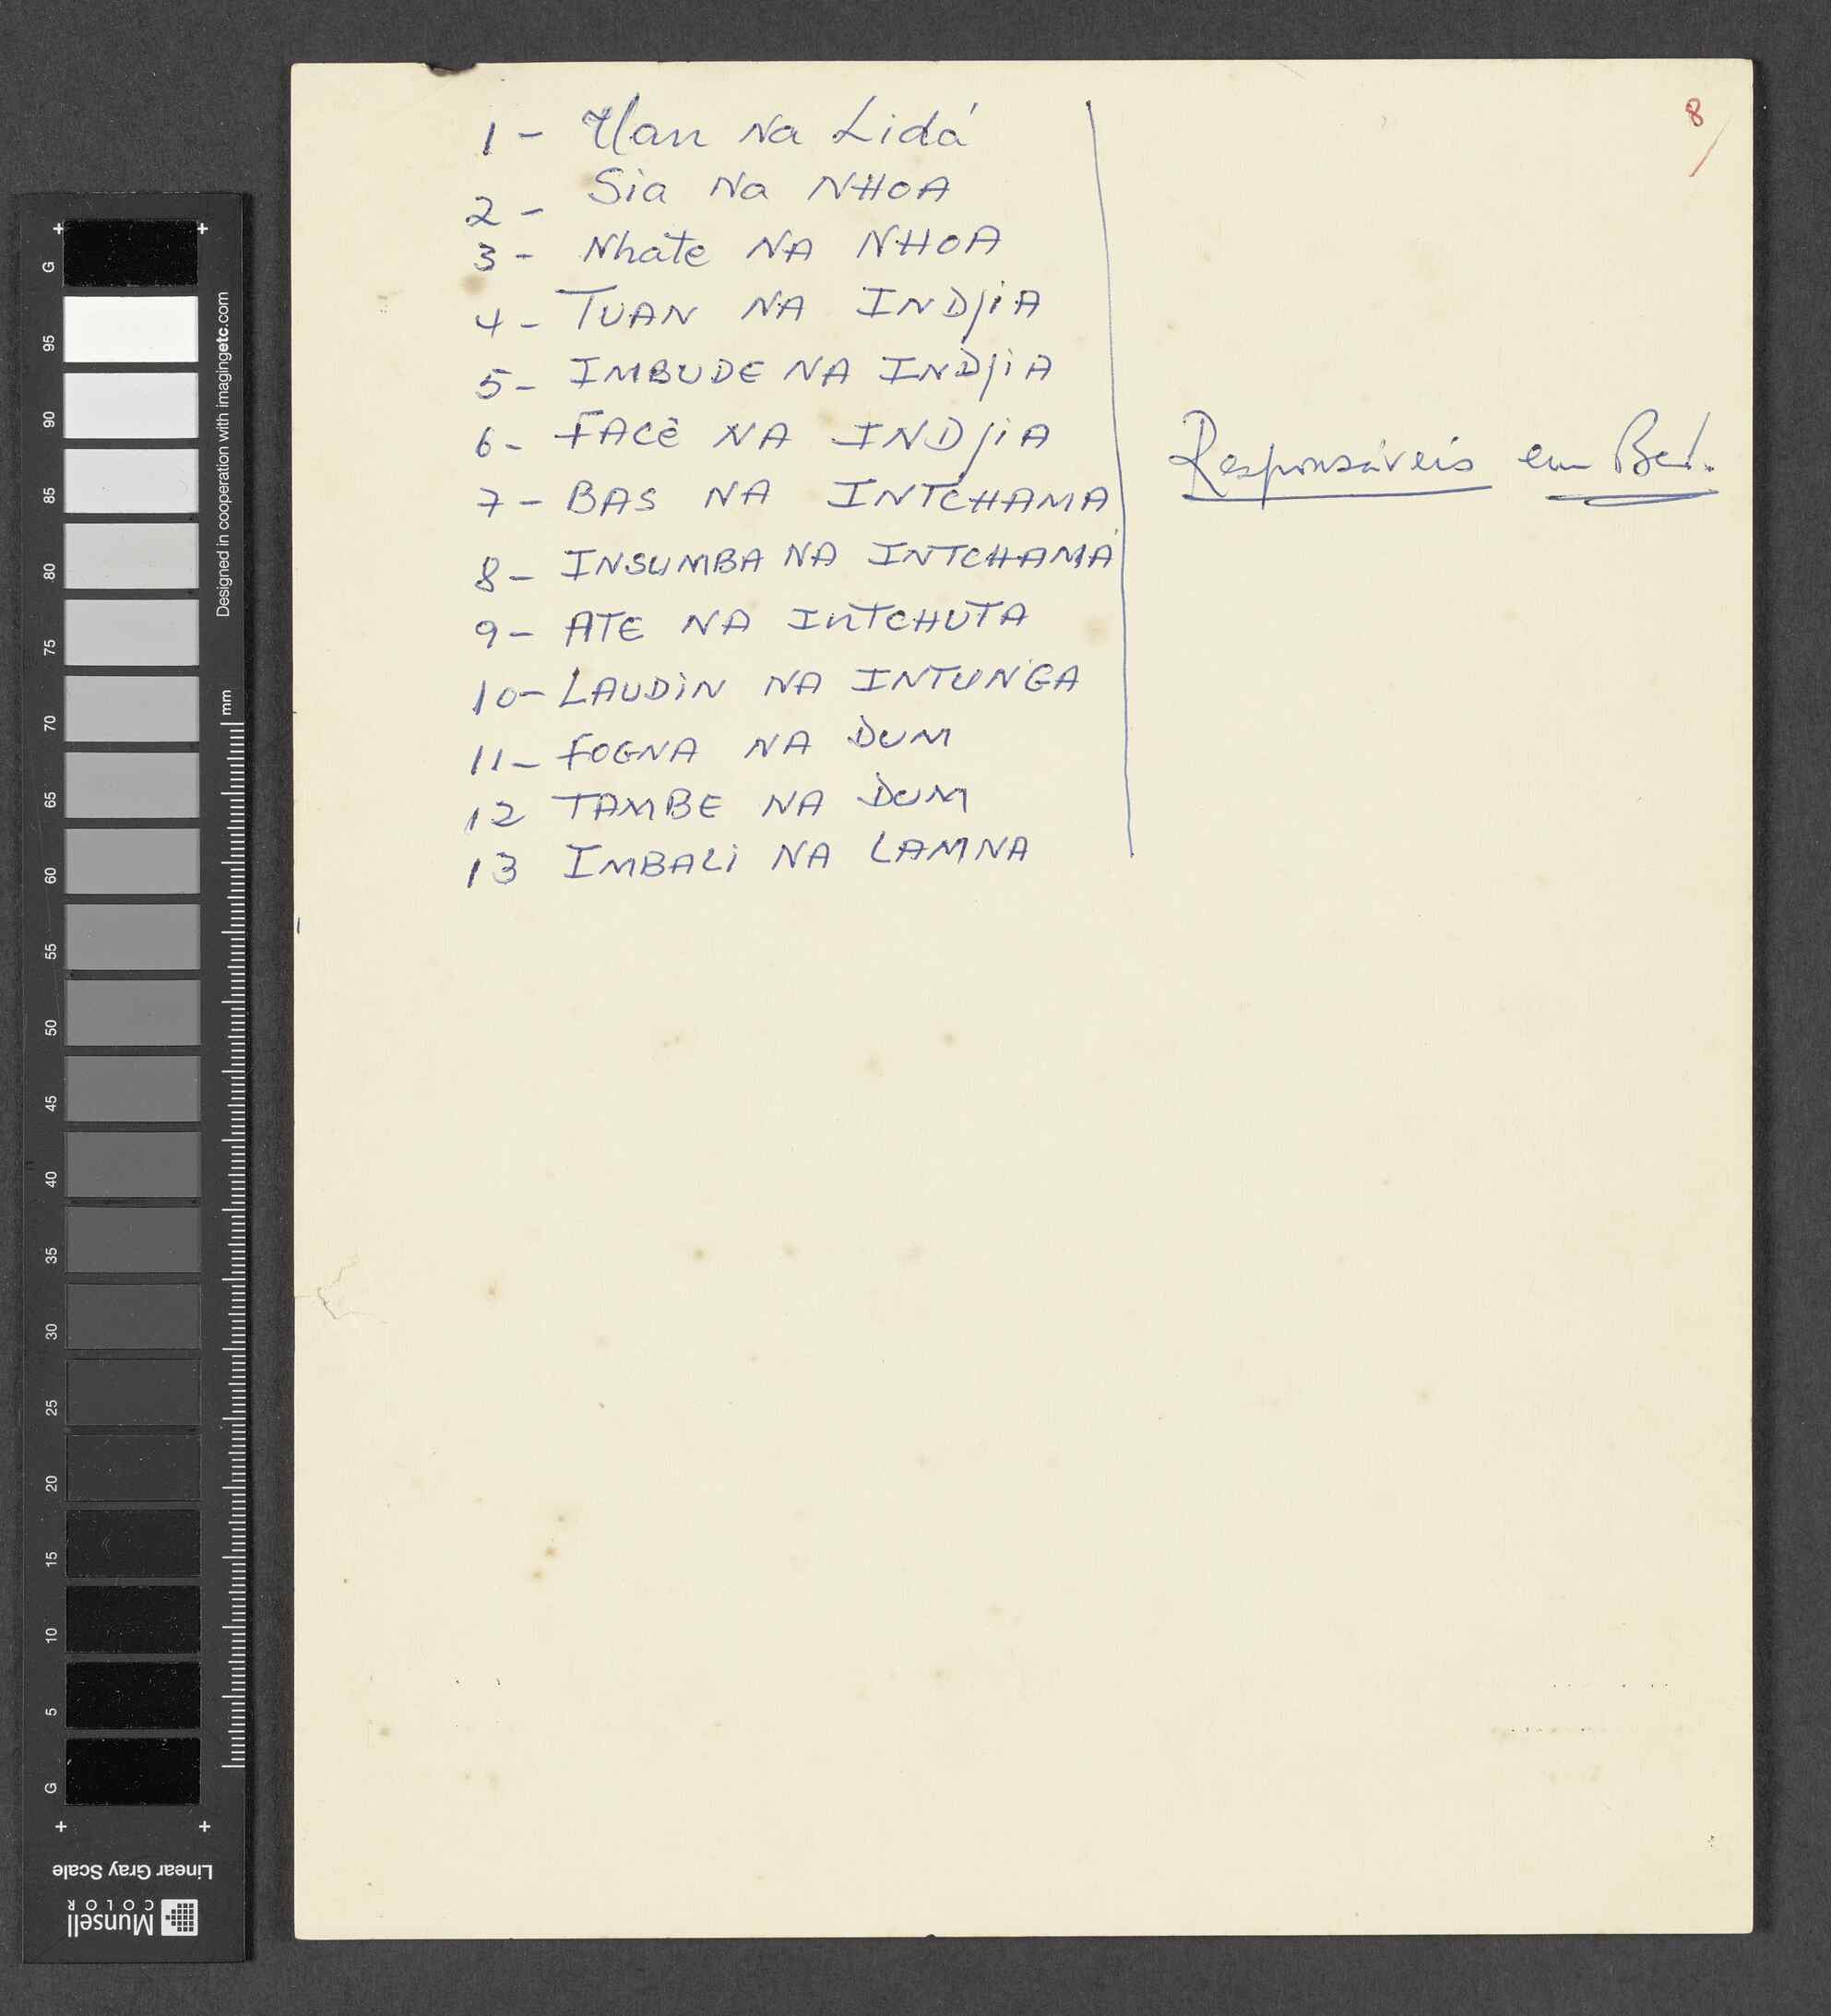 8
1 - Ulan Na Lidá
2 - Sia Na NHOA
3 - Nhate NA NHOA
4 - TUAN NA INDjiA
5 - IMBUDE NA INDjiA
6 - FACÊ NA INDjiA
7 - BAS NA INTCHAMA
8 - INSUMBA NA INTCHAMA
9 - ATE NA INTCHUTA
10 - LAUDiN NA INTUNGA
11 - FOGNA NA DUM
12 TAMBE NA DUM
13 IMBALi NA LAMNA
Responsáveis em
G
95
90
85
80
75
70
65
60
55
50
45
40
35
30
25
20
15
10
5
G
Designed in cooperation with imagingetc.com
mm
Linear Gray Scale
Munsell
COLOR